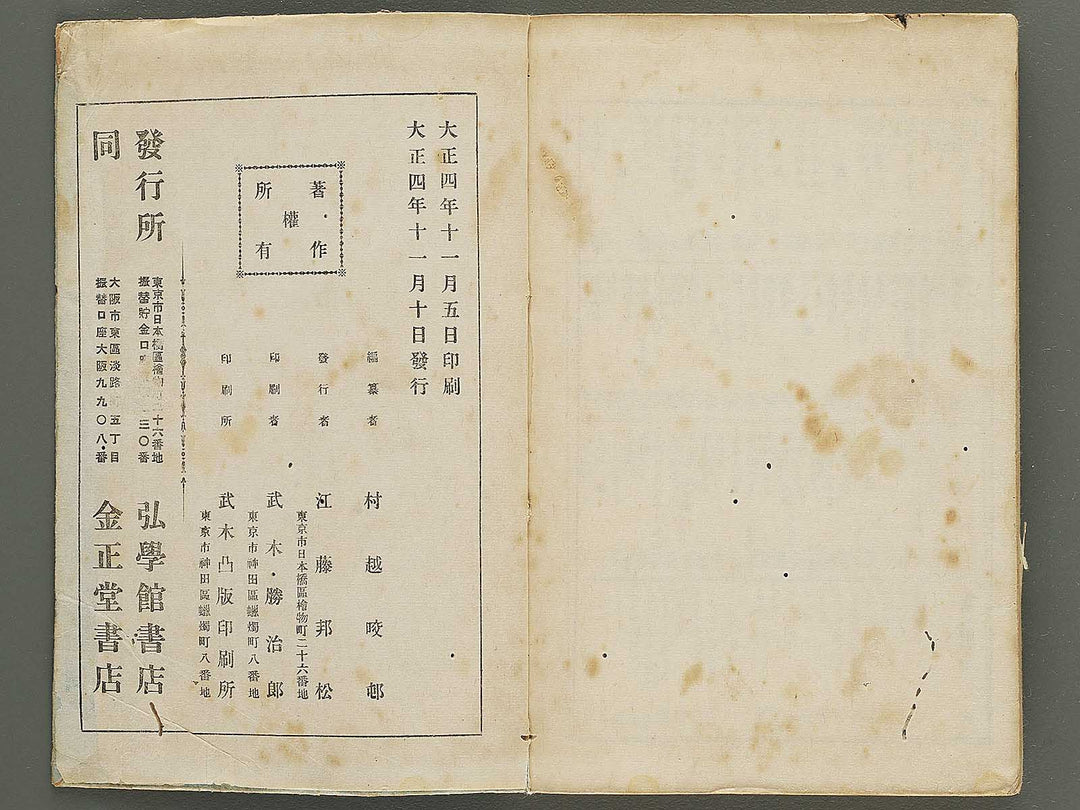 大正四年十一月五日印刷
大正四年十一月十日發行
著作
權
所有
編纂者 村越咬邨
發行者 江藤邦松
東京市日本橋區檜物町二十六番地
印刷者 武木勝治郎
東京市神田區蠟燭町八番地
印刷所 武木凸版印刷所
東京市神田區蠟燭町八番地
發行所 弘學館書店
東京市日本橋區檜物 十六番地
振替貯金口 三〇番
同 金正堂書店
大阪市東區淡路 五丁目
振替口座大阪九九〇八番